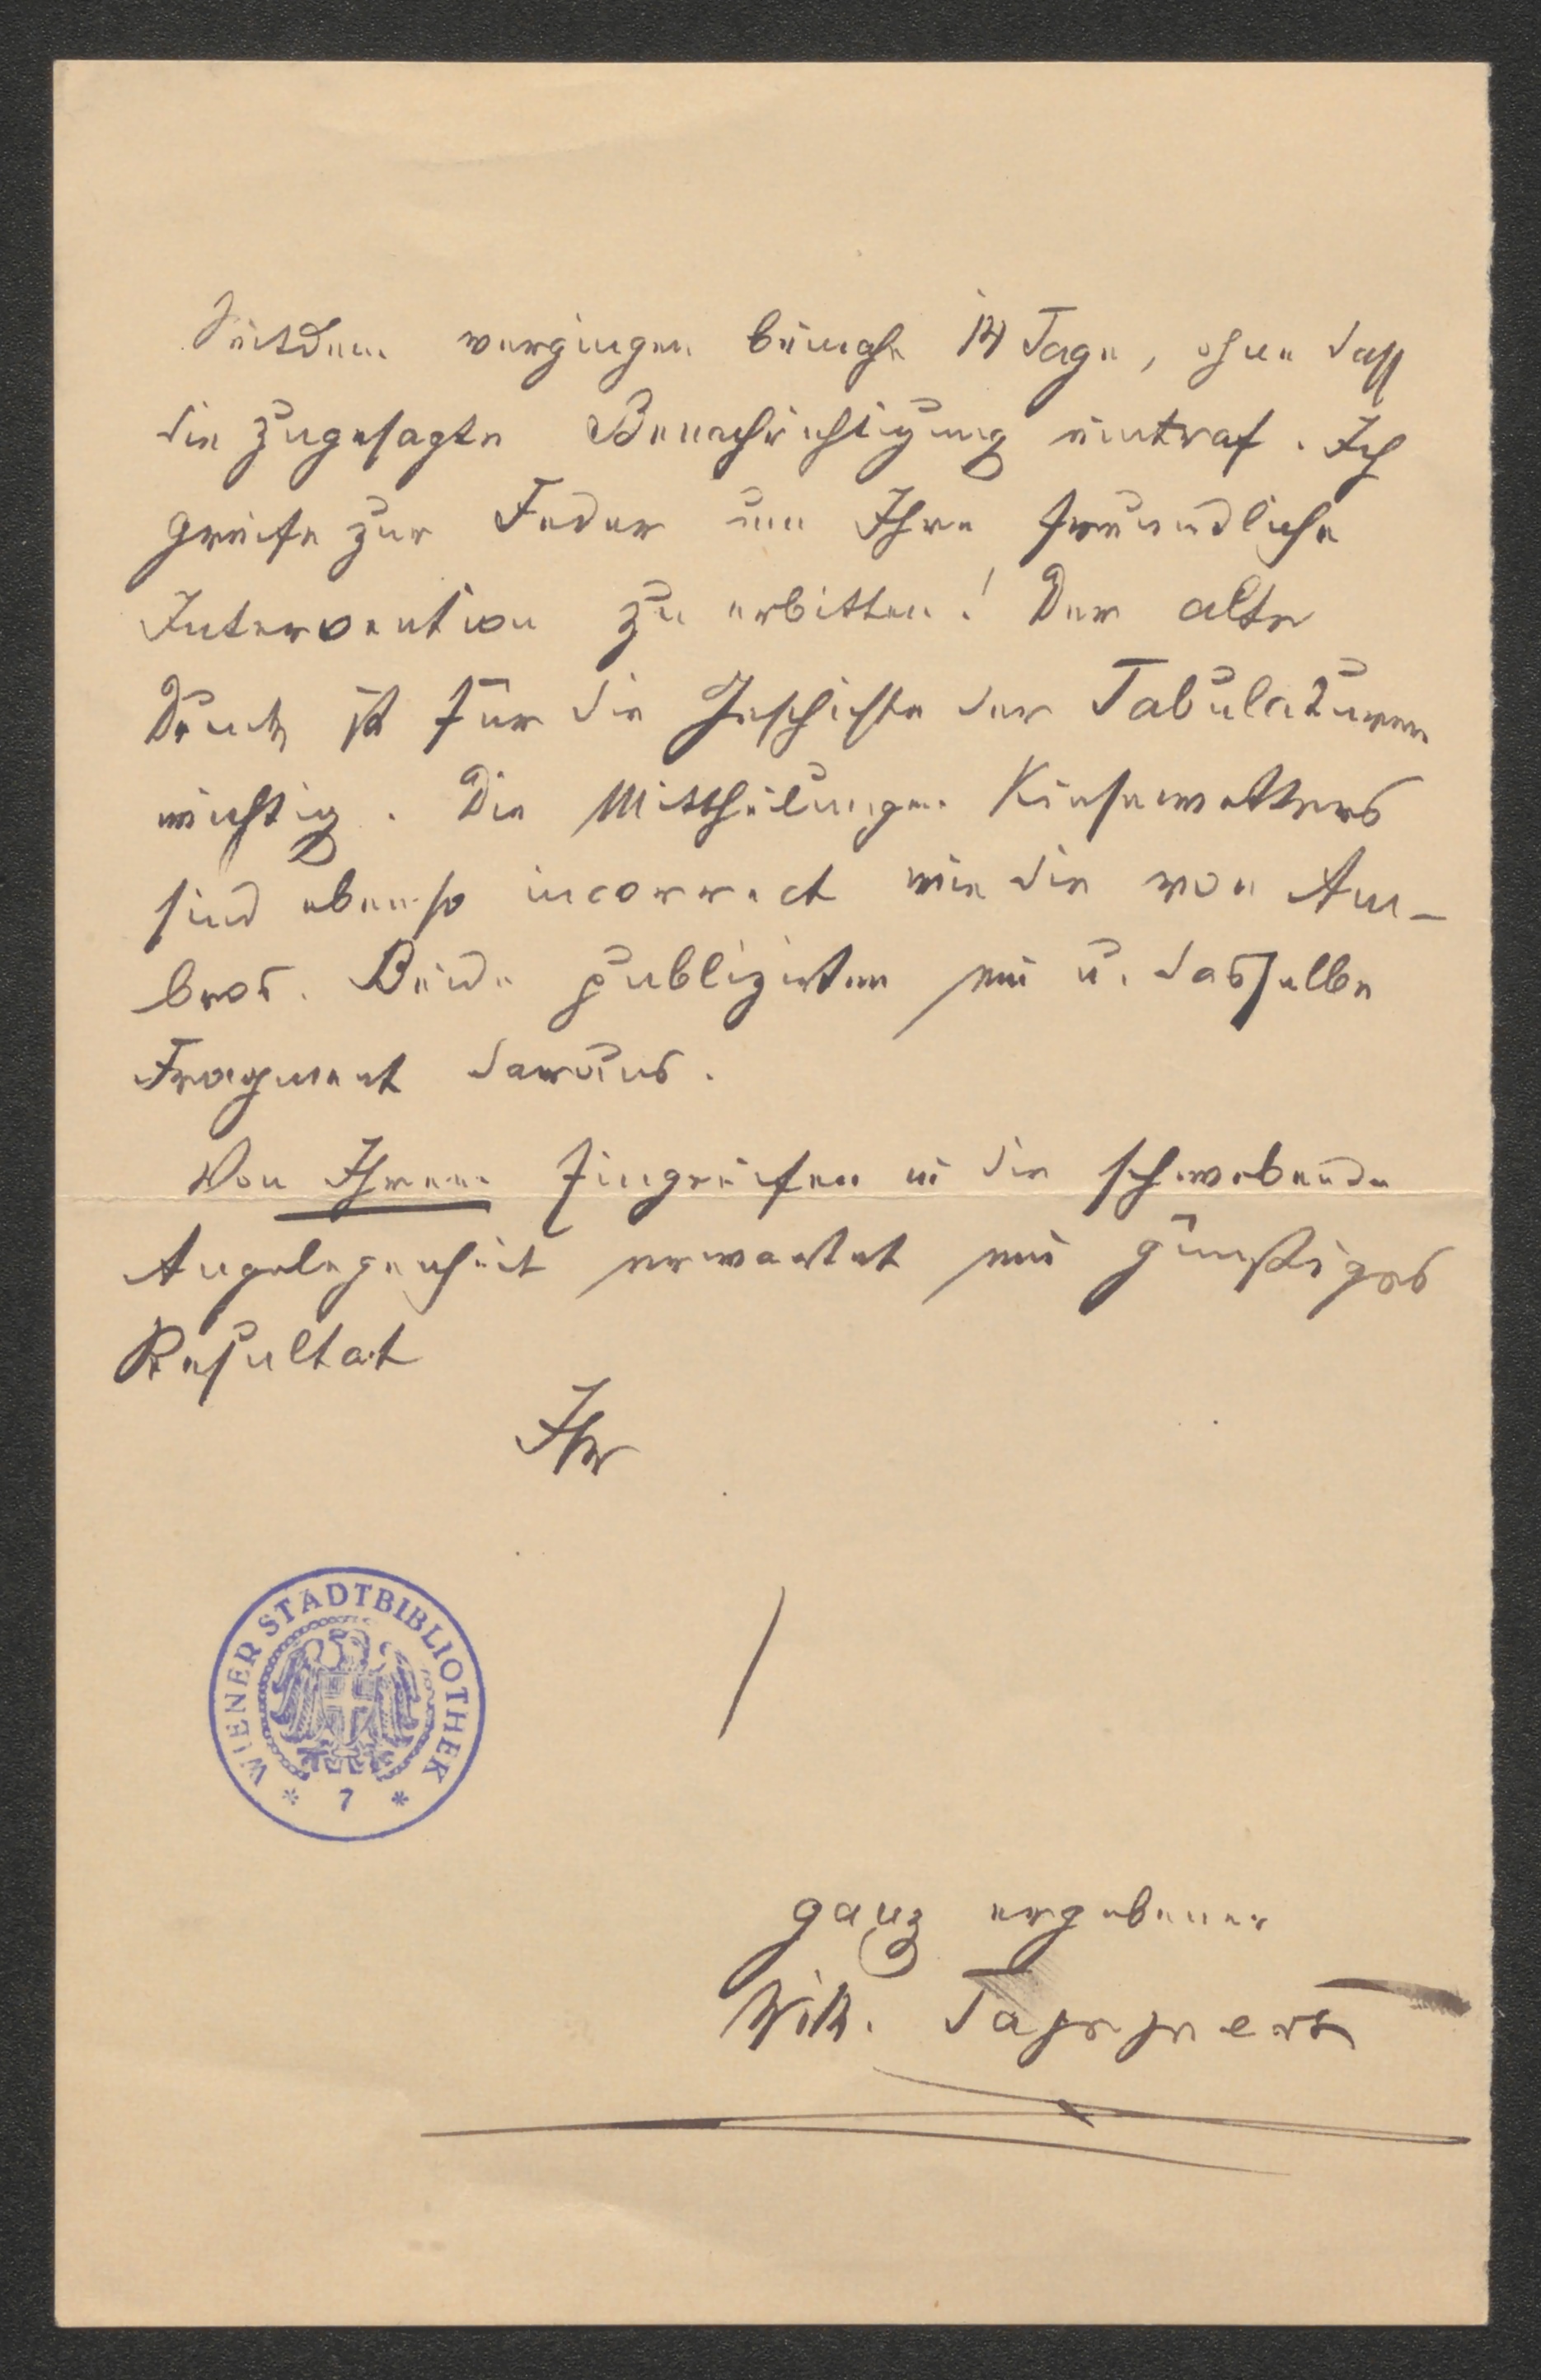 Seitdem vergingen beinahe 14 Tage, ohne dass
die zugesagte Benachrichtigung eintraf. Ich
greife zur Feder um Ihre freundliche
Intervention zu erbitten! Der alte
Druck ist für die Geschichte der Tabulaturen
wichtig. Die Mittheilungen Kiesewetters
sind ebenso incorrect wie die von Am-
bros. Beide publizirten ein u. dasselbe
Fragment daraus.
Von Ihrem Eingreifen in die schwebende
Angelegenheit erwartet ein günstiges
Resultat
Ihr
WIENER STADTBIBLIOTHEK
* 7 *
ganz ergebener
Wilh. Tappert